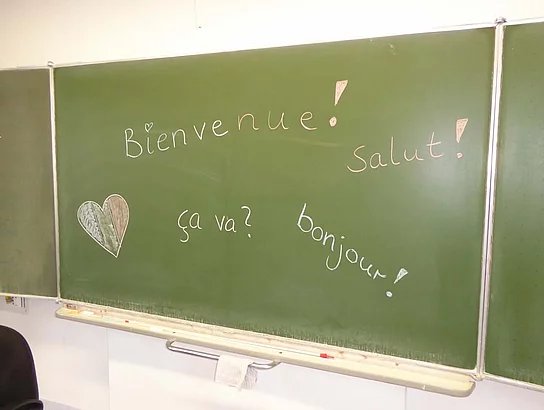 Bienvenue!
Salut!
ça va?
bonjour!